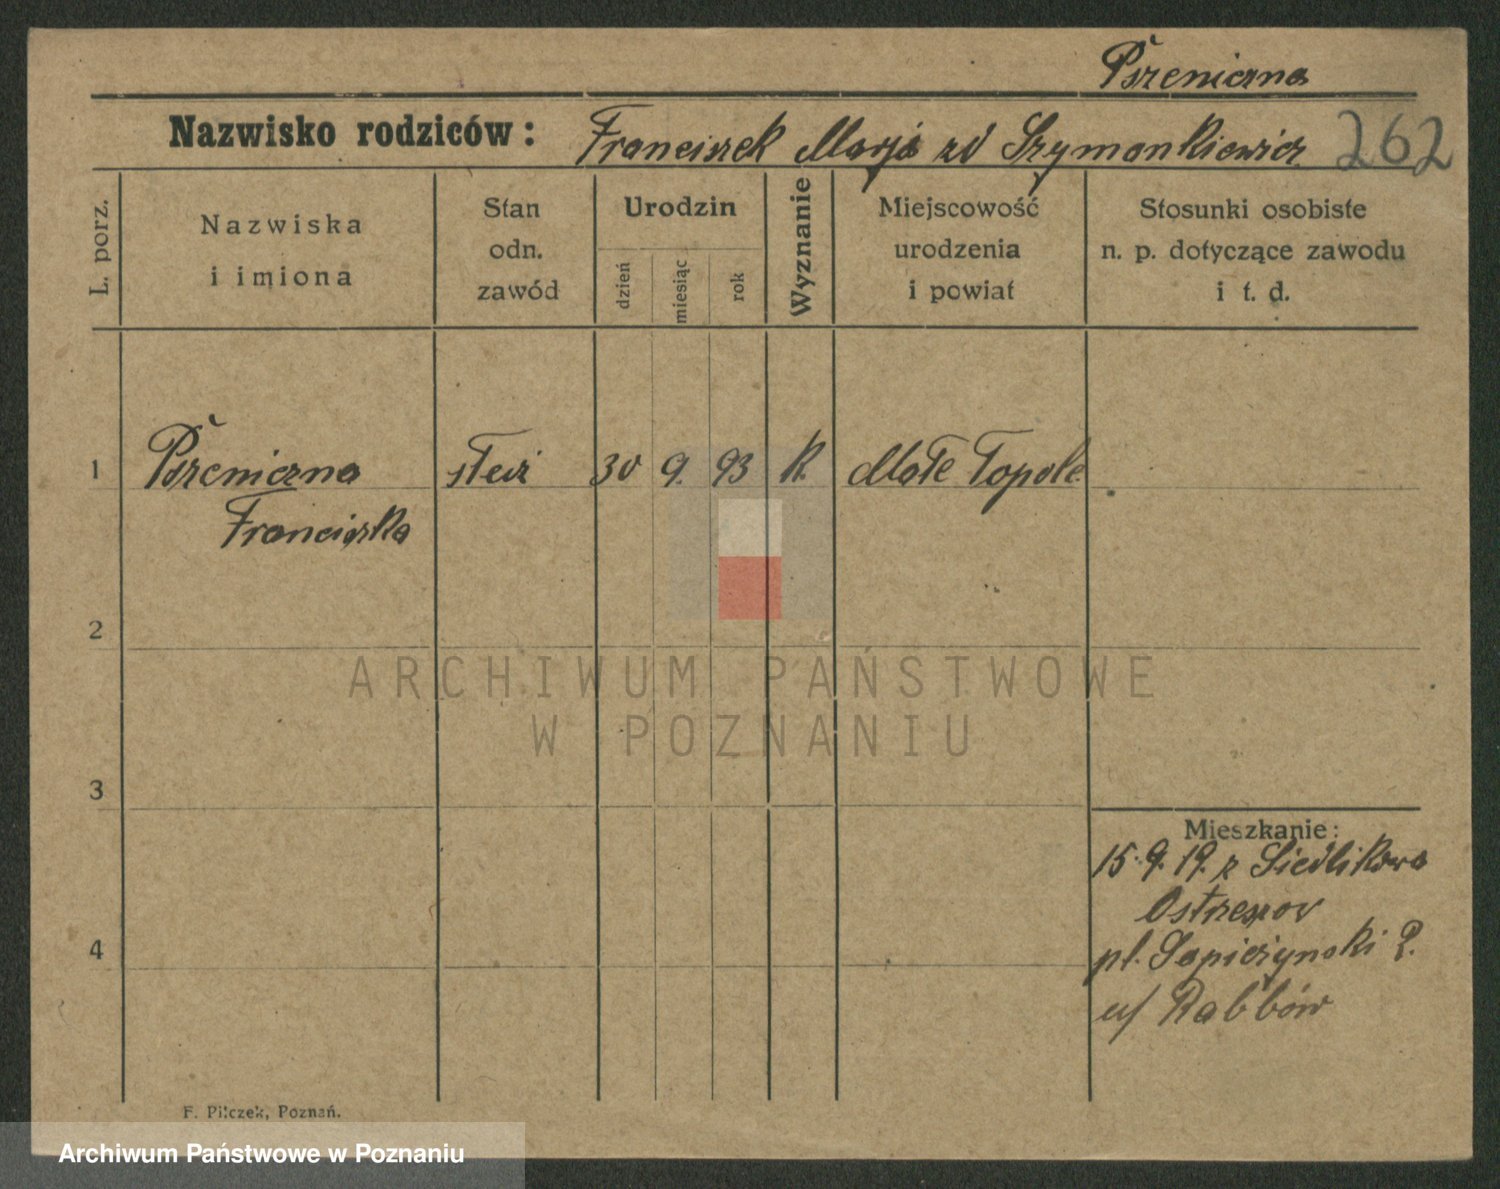 Pszeniczna
Nazwisko rodziców: Franciszek Marja zd Szymankiewicz 262
L. porz.
Nazwiska
i imiona
Stan
odn.
zawód
Urodzin
dzień
miesiąc
rok
Wyznanie
Miejscowość
urodzenia
i powiat
Stosunki osobiste
n. p. dotyczące zawodu
i t. d.
1 Pszeniczna 30 9. 93 K. Małe Topole
Franciszka
2
ARCHIWUM PAŃSTWOWE
W POZNANIU
3
Mieszkanie:
15.9.19. z Siedlikowa
Ostrzeszov
4
pl. Sapieżynski 2.
u/ Rabbów
F. Pilczek, Poznań.
Archiwum Państwowe w Poznaniu